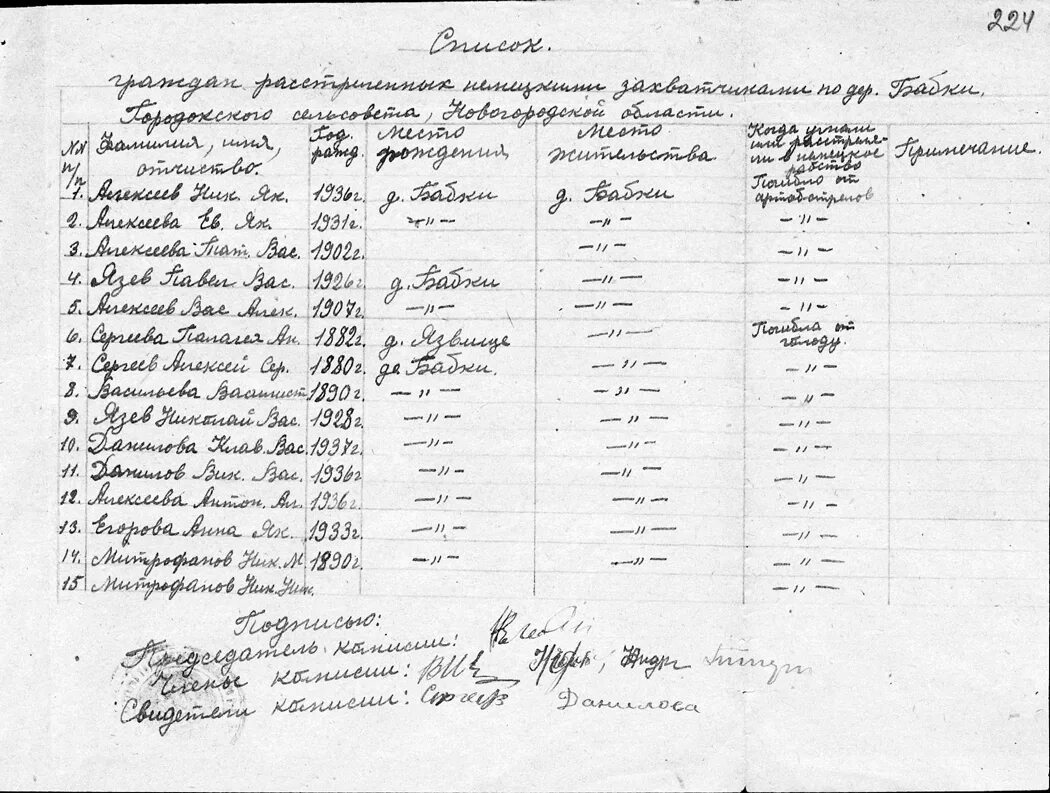 224
Список.
граждан расстрелянных немецкими захватчиками по дер. Бабки.
Городокского сельсовета, Новогородской области.
№№ п/п Фамилия, имя, отчиство. Год. рожд. Место рождения Место жительства Когда угнали или расстреляли в немецкое рабство Примечание.
1. Алексеев Ник. Як. 1936г. д. Бабки д. Бабки Погибло от артобстрелов
2. Алексеева Ев. Як. 1931г. —"— —"— —"—
3. Алексеева Тат. Вас. 1902г. —"— —"—
4. Язев Павел Вас. 1926г. д. Бабки —"— —"—
5. Алексеев Вас Алек. 1907г. —"— —"— —"—
6. Сергеева Палагея Ан. 1882г. д. Язвище —"— Погибла от голоду.
7. Сергеев Алексей Сер. 1880г. де Бабки. —"— —"—
8. Васильева 1890г. —"— —"— —"—
9. Язев Николай Вас. 1928г. —"— —"— —"—
10. Данилова Клав. Вас. 1937г. —"— —"— —"—
11. Данилов Вик. Вас. 1936г —"— —"— —"—
12. Алексеева Антон. Ал. 1936г. —"— —"— —"—
13. Егорова Анна Як. 1933г. —"— —"— —"—
14. Митрофанов Ник. М 1890г. —"— —"— —"—
15 Митрофанов Ник. Ник. —"—
Подписью:
Председатель комисии:
Члены комисии:
Свидетели комисии: Сергеев Данилова